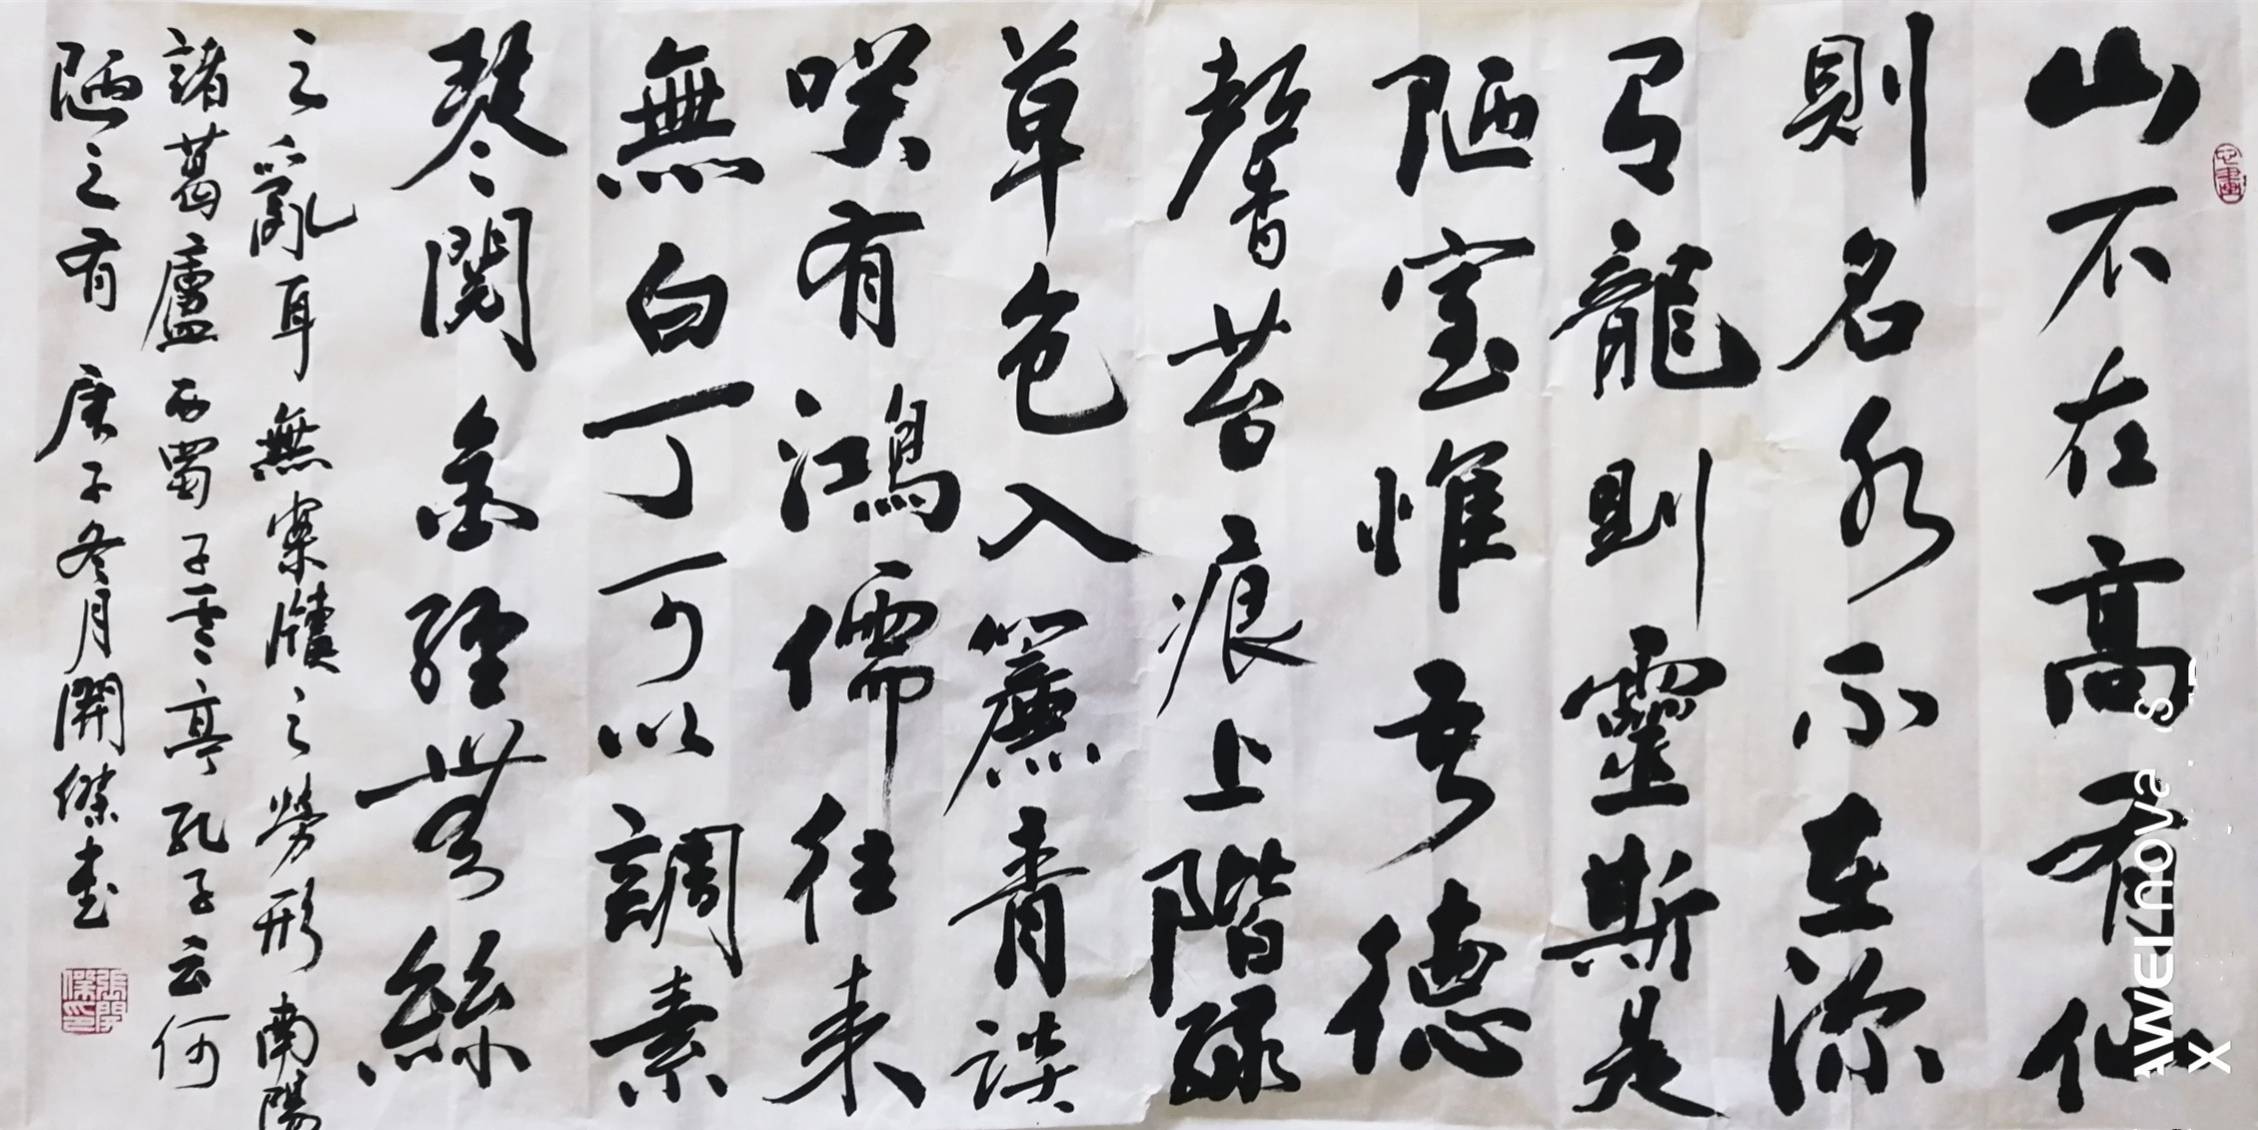 山不在高有仙
則名水不在深
有龍則靈斯是
陋室惟吾德
馨苔痕上階緑
草色入簾青談
咲有鴻儒往来
無白丁可以調素
琴閱金經無絲
之亂耳無案牘之勞形南陽
諸葛廬西蜀子雲亭孔子云何
陋之有 庚子冬月開傑書
張開傑印